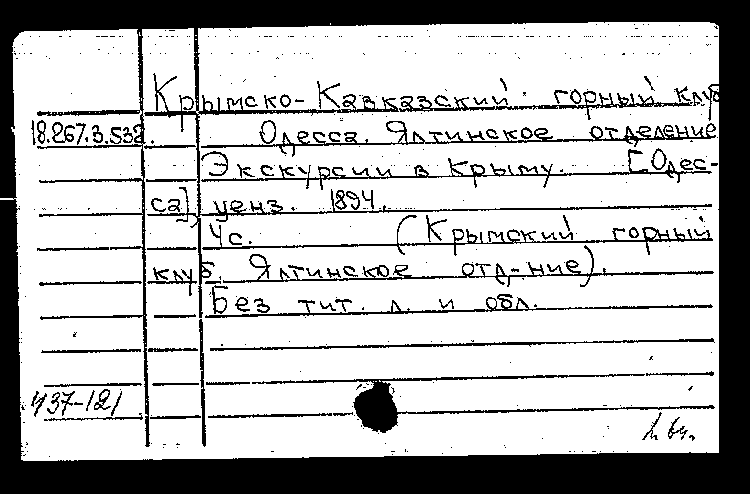 Крымско-Кавказский горный клуб
18.267.3.532. Одесса. Ялтинское отделение
Экскурсии в Крыму. [Одес-
са], ценз. 1894.
4с. (Крымский горный
клуб. Ялтинское отд-ние).
Без тит. л. и обл.
437-121